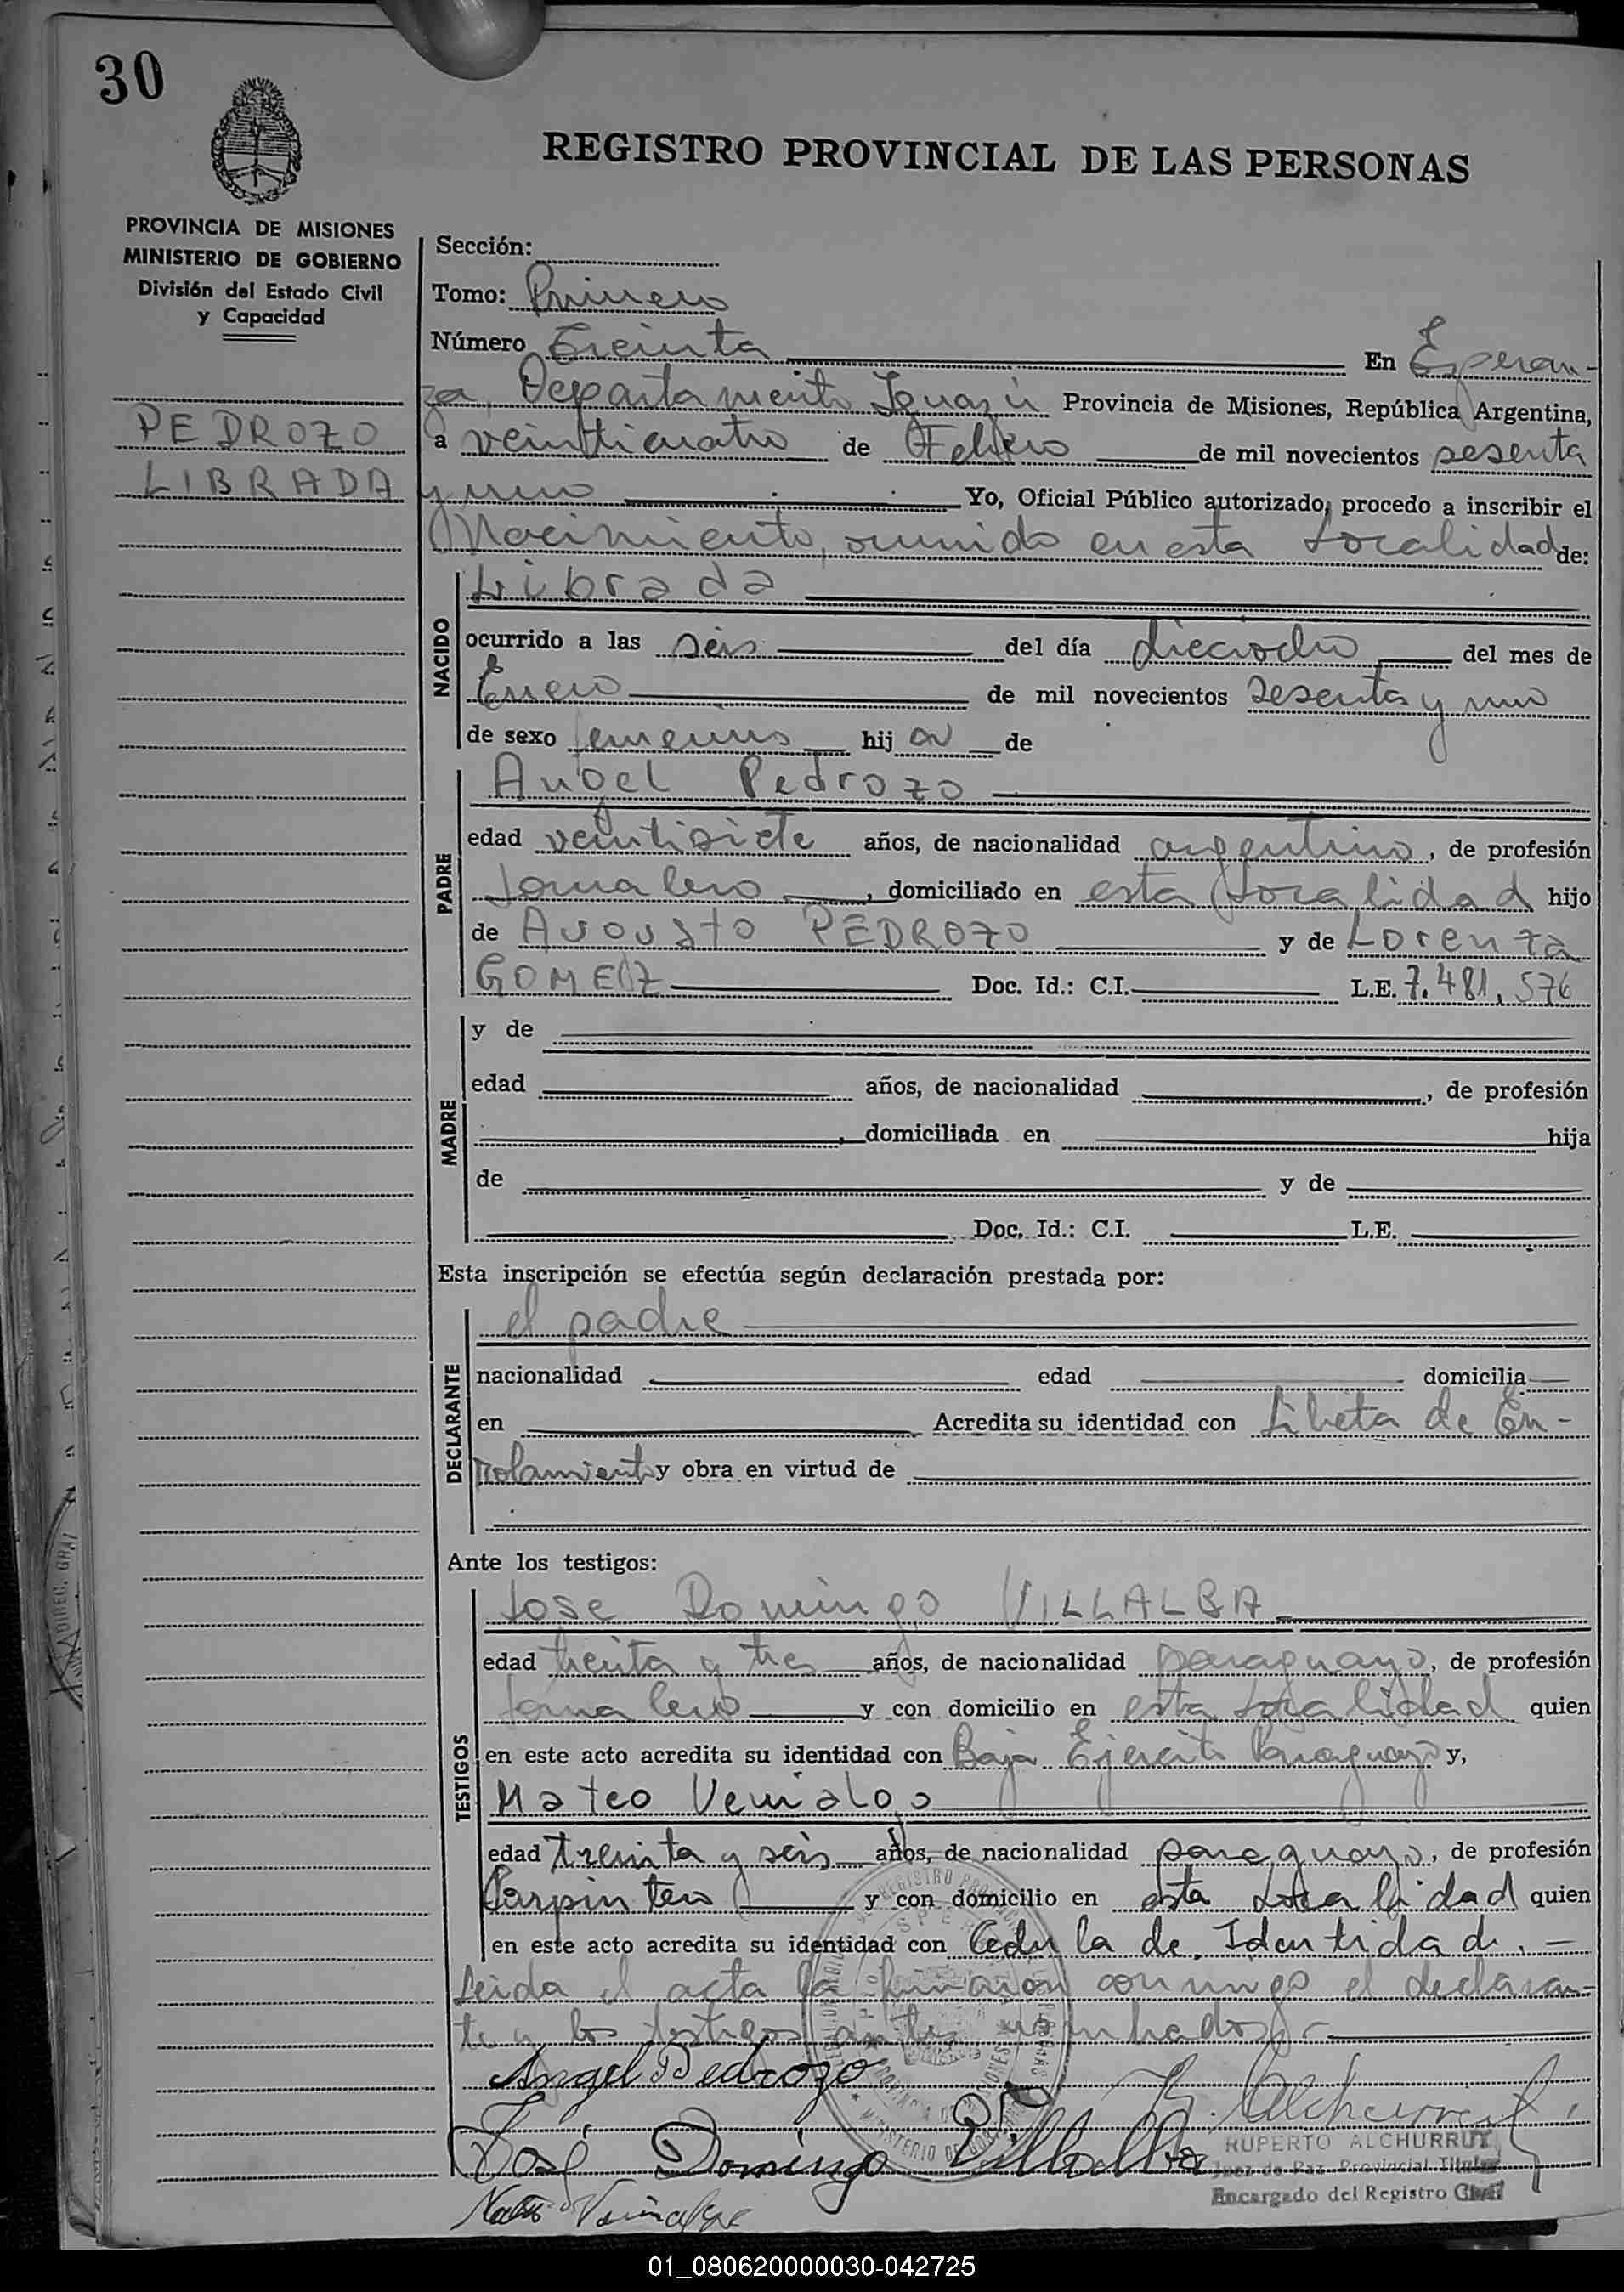 30
REGISTRO PROVINCIAL DE LAS PERSONAS
PROVINCIA DE MISIONES
MINISTERIO DE GOBIERNO
División del Estado Civil
y Capacidad
PEDROZO
LIBRADA
Sección:
Tomo: Primero
Número Treinta En Esperan-
za, Departamento Iguazú Provincia de Misiones, República Argentina,
a veinticuatro de Febrero de mil novecientos sesenta
y uno Yo, Oficial Público autorizado, procedo a inscribir el
Nacimiento, ocurrido en esta Localidad de:
NACIDO
Librada
ocurrido a las seis del día dieciocho del mes de
Enero de mil novecientos sesenta y uno
de sexo femenino hij a de
PADRE
Angel Pedrozo
edad veintisiete años, de nacionalidad argentino, de profesión
Jornalero, domiciliado en esta Localidad hijo
de Augusto PEDROZO y de Lorenza
GOMEZ Doc. Id.: C.I. L.E. 7.481.576
MADRE
y de
edad años, de nacionalidad , de profesión
, domiciliada en hija
de y de
Doc. Id.: C.I. L.E.
Esta inscripción se efectúa según declaración prestada por:
DECLARANTE
el padre
nacionalidad edad domicilia
en Acredita su identidad con Libreta de En-
rolamiento y obra en virtud de
Ante los testigos:
TESTIGOS
Jose Domingo VILLALBA
edad treinta y tres años, de nacionalidad paraguayo, de profesión
Jornalero y con domicilio en esta Localidad quien
en este acto acredita su identidad con Baja Ejercito Paraguayo y,
Mateo Venialgo
edad treinta y seis años, de nacionalidad paraguayo, de profesión
Carpintero y con domicilio en esta Localidad quien
en este acto acredita su identidad con Cedula de Identidad. -
Leida el acta la firmaron conmigo el declaran-
te y los testigos antes nombrados. -
Angel Pedrozo
José Domingo Villalba
R. Alchurrut
RUPERTO ALCHURRUT
Juez de Paz Provincial Titular
Encargado del Registro Civil
01_080620000030-042725